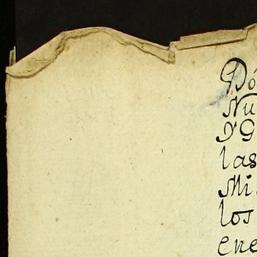 Dó
Nu
Y G
las
Mi
los
ene